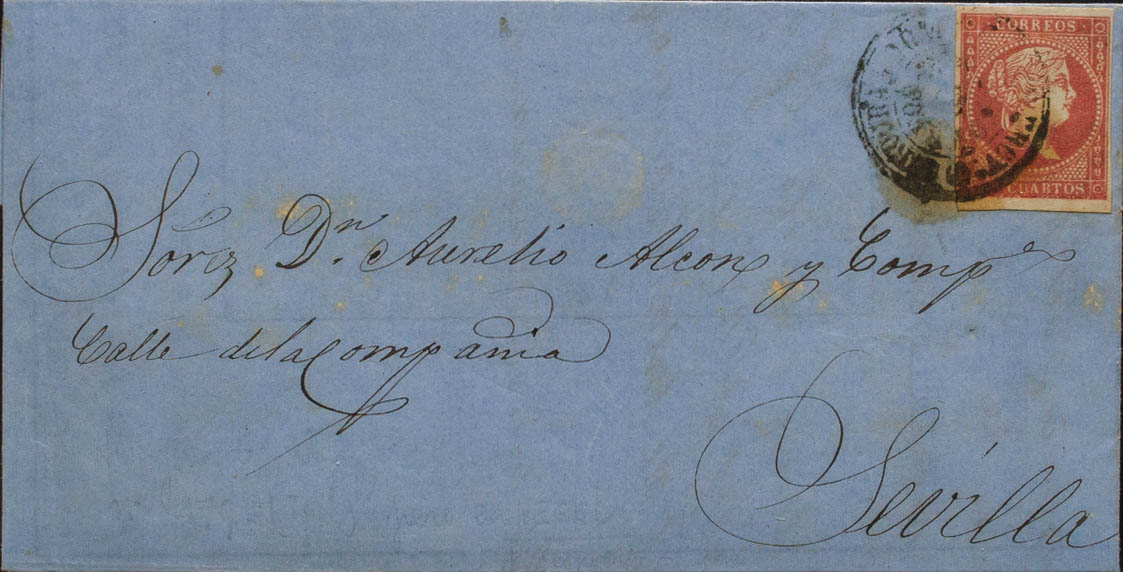 CORREOS
CUARTOS
Sōres Dn. Aurelio Alcon y Compa
Calle de la Compañia
Sevilla